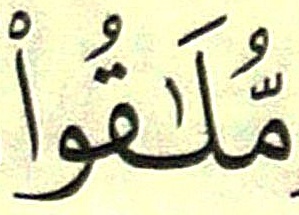 مُّلَـٰقُوا۟